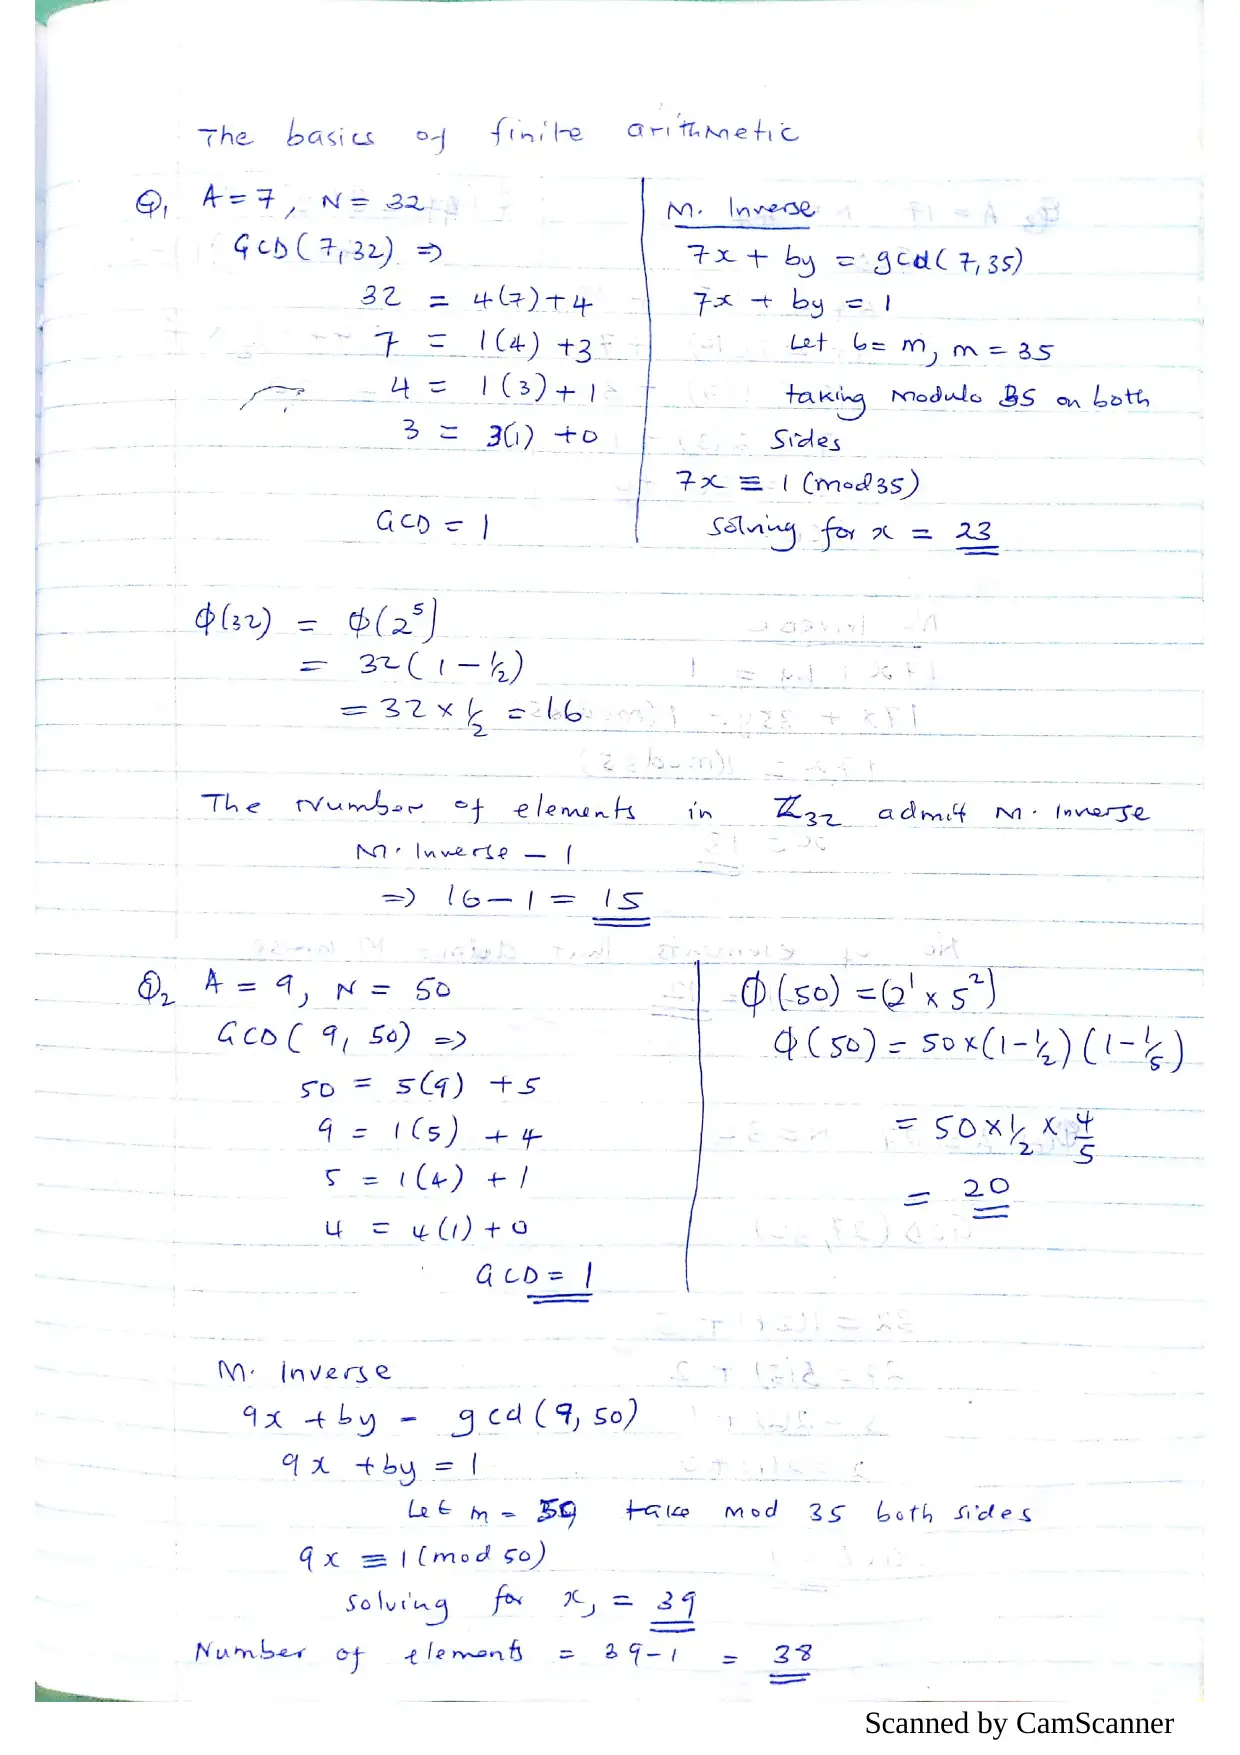 The basics of finite arithmetic
Q1 A = 7, N = 32
GCD(7,32) =>
32 = 4(7)+4
7 = 1(4) +3
4 = 1(3)+1
3 = 3(1) +0
GCD = 1
M. Inverse
7x + by = gcd(7,35)
7x + by = 1
Let b= m, m = 35
taking modulo 35 on both
sides
7x ≡ 1 (mod35)
solving for x = 23
ϕ(32) = ϕ(2⁵)
= 32(1-1/2)
= 32 x 1/2 = 16
The number of elements in ℤ32 admit M. Inverse
M. Inverse - 1
=> 16-1 = 15
Q2 A = 9, N = 50
GCD( 9, 50) =>
50 = 5(9) +5
9 = 1(5) +4
5 = 1(4) +1
4 = 4(1)+0
GCD = 1
ϕ(50) =(2¹ x 5²)
ϕ(50) = 50x(1-1/2)(1-1/5)
= 50x1/2 x 4/5
= 20
M. Inverse
9x +by - gcd(9,50)
9x +by = 1
Let m = 50 take mod 35 both sides
9x ≡ 1(mod 50)
solving for x, = 39
Number of elements = 39-1 = 38
Scanned by CamScanner